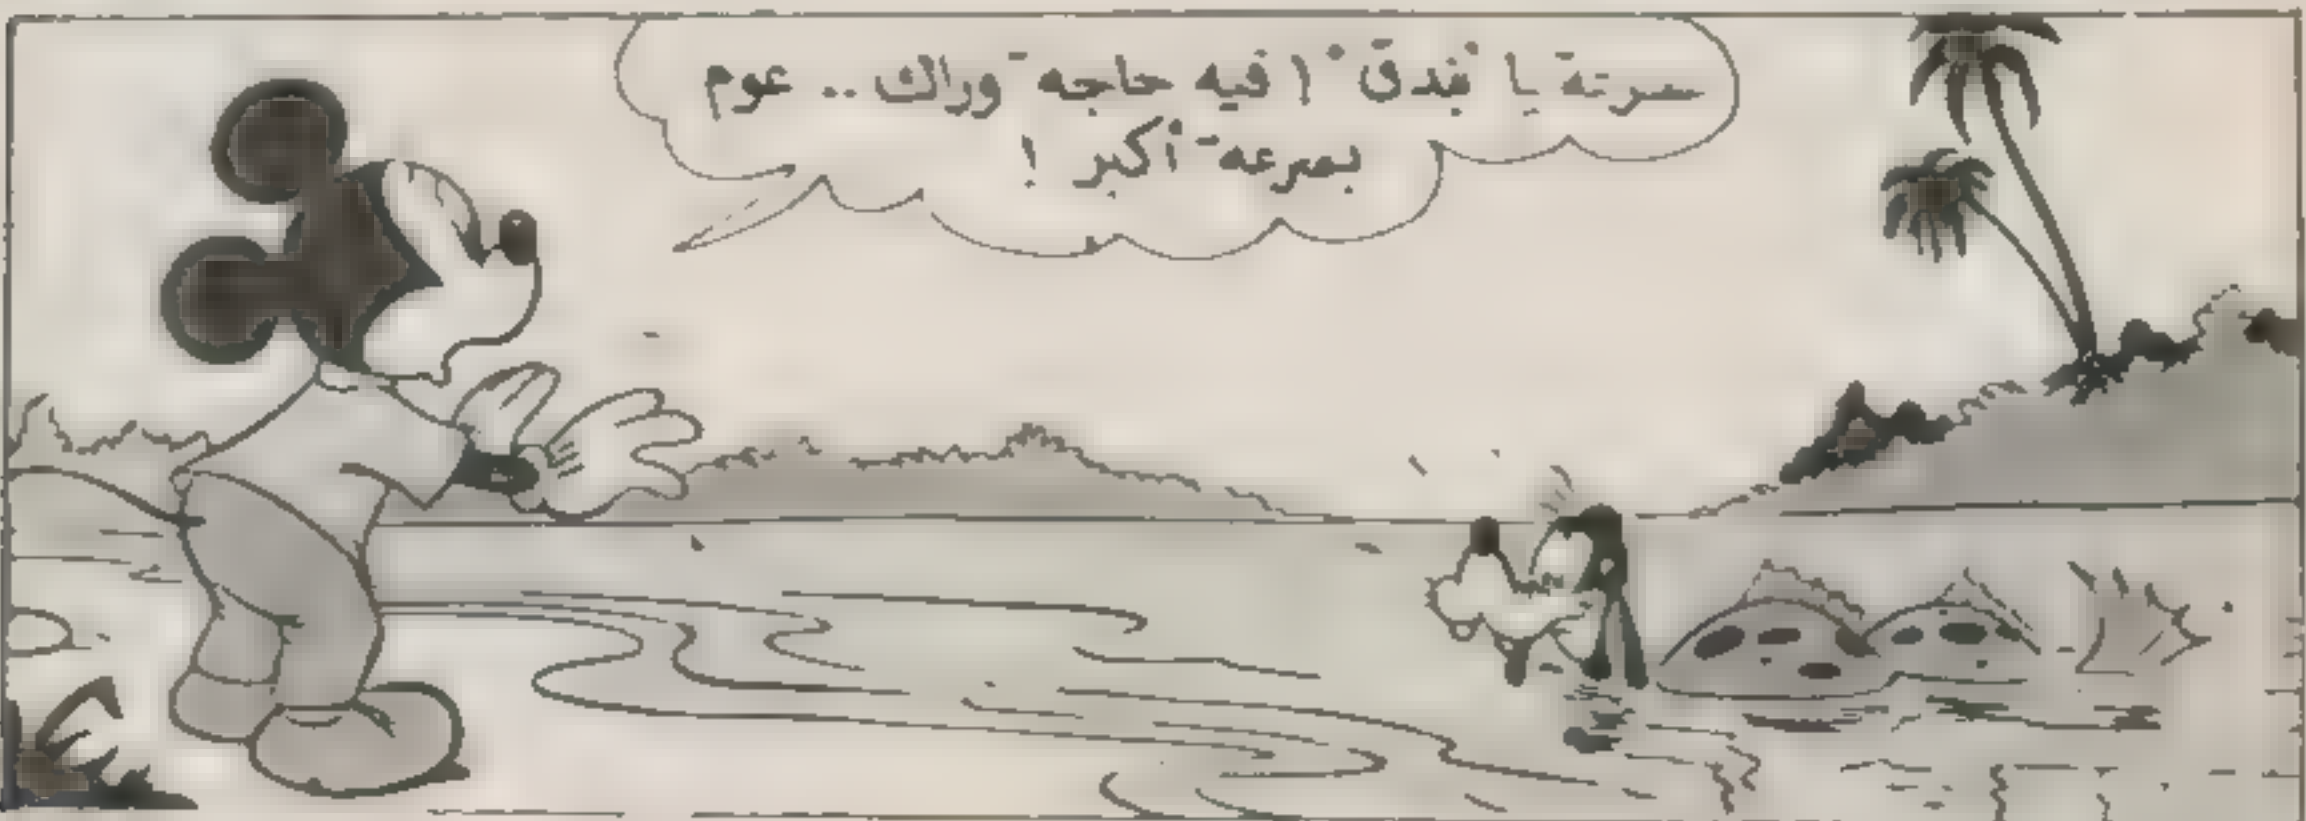 يا بندق ! فيه حاجه وراك .. عوم
بسرعه أكبر !